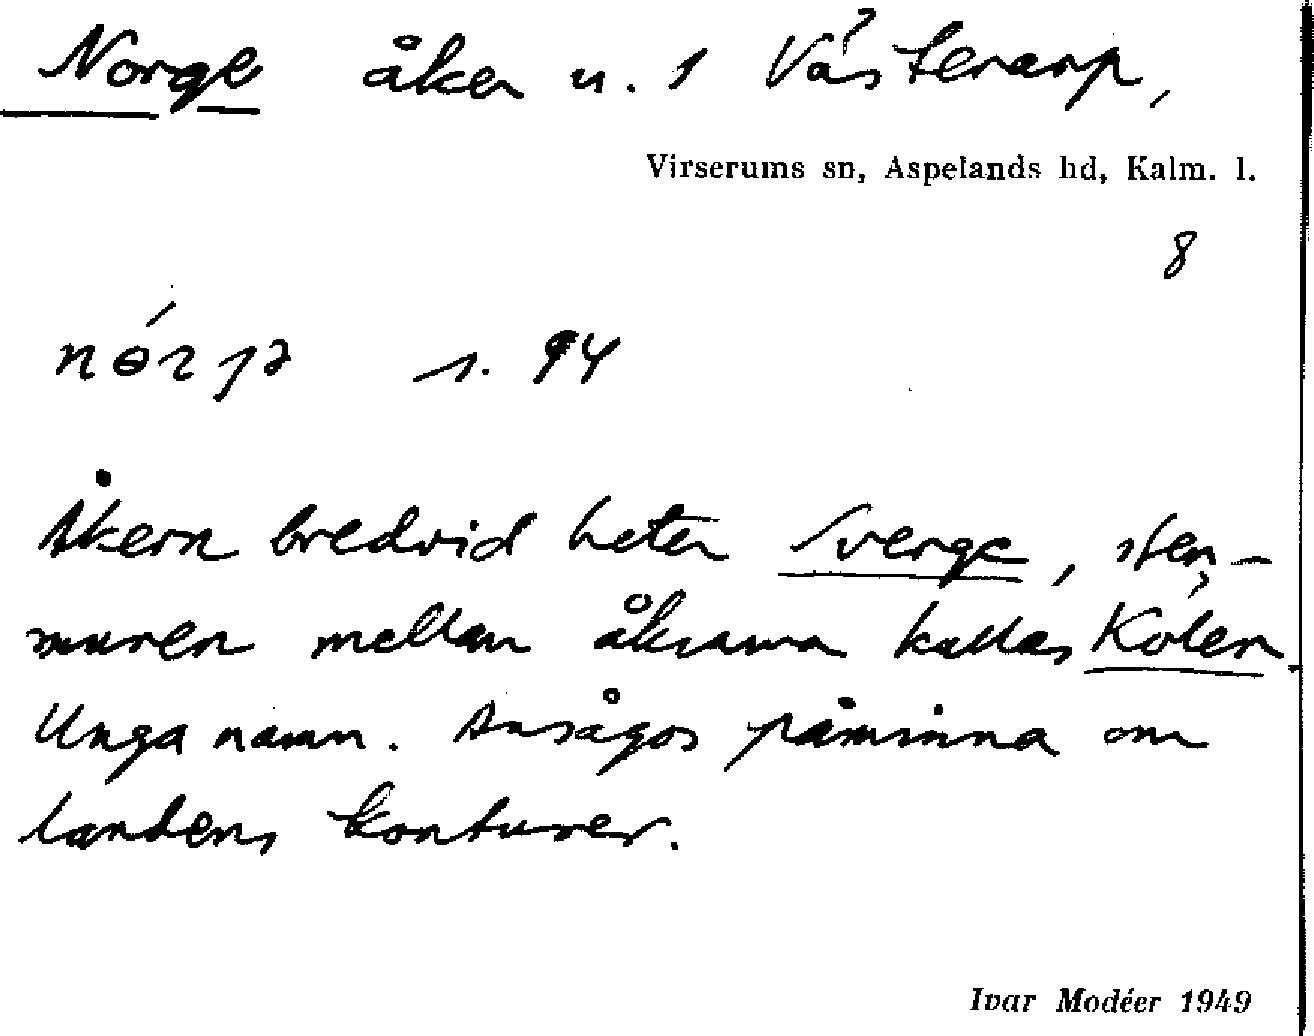 Norge åker u. 1 Västerarp,
Virserums sn, Aspelands hd, Kalm. l.
8
s. 94
Åkern bredvid heter Sverge, sten-
muren mellan åkrarna kallas Kölen.
Unga namn. Ansågos påminna om
landens konturer.
Ivar Modéer 1949